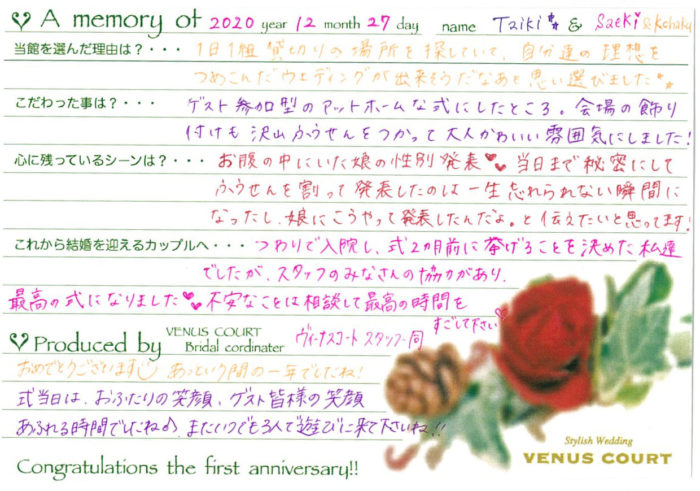 A memory of 2020 year 12 month 27 day name Taiki & Saeki & Kohaku
当館を選んだ理由は?・・・ 1日1組貸切りの場所を探していて、自分達の理想を
つめこんだウエディングが出来そうだなあと思い選びました
こだわった事は?・・・ ゲスト参加型のアットホームな式にしたところ。会場の飾り
付けも沢山ふうせんをつかって大人かわいい雰囲気にしました!
心に残っているシーンは?・・・ お腹の中にいた娘の性別発表 当日まで秘密にして
ふうせんを割って発表したのは一生忘れられない瞬間に
なったし、娘にこうやって発表したんだよ。と伝えたいと思ってます!
これから結婚を迎えるカップルへ・・・ つわりで入院し、式2カ月前に挙げることを決めた私達
でしたが、スタッフのみなさんの協力があり、
最高の式になりました 不安なことは相談して最高の時間を
すごして下さい
Produced by VENUS COURT Bridal cordinater ヴィーナスコート スタッフ一同
おめでとうございます あっという間の一年でしたね!
式当日は、おふたりの笑顔、ゲスト皆様の笑顔
あふれる時間でしたね♪ またいつでも3人で遊びに来て下さいね!!
Stylish Wedding
VENUS COURT
Congratulations the first anniversary!!